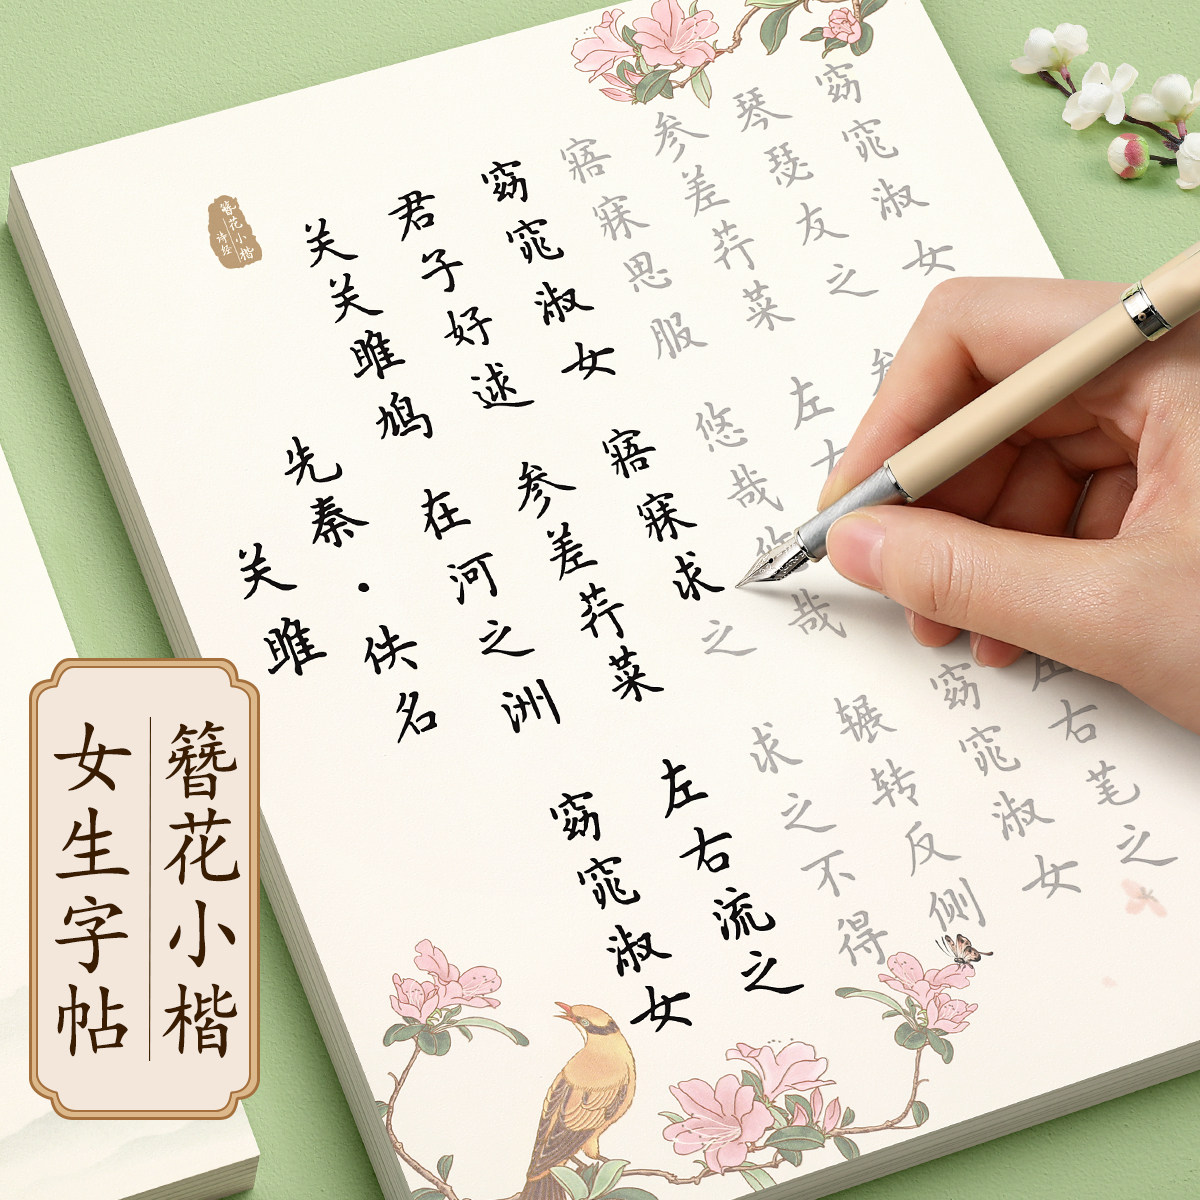 簪花小楷
诗经
关雎
先秦·佚名
关关雎鸠 在河之洲 窈窕淑女
君子好逑 参差荇菜 左右流之
窈窕淑女 寤寐求之 求之不得
寤寐思服 悠哉悠哉 辗转反侧
参差荇菜 左右 窈窕淑女
琴瑟友之 参 左右笔之
窈窕淑女
簪花小楷
女生字帖